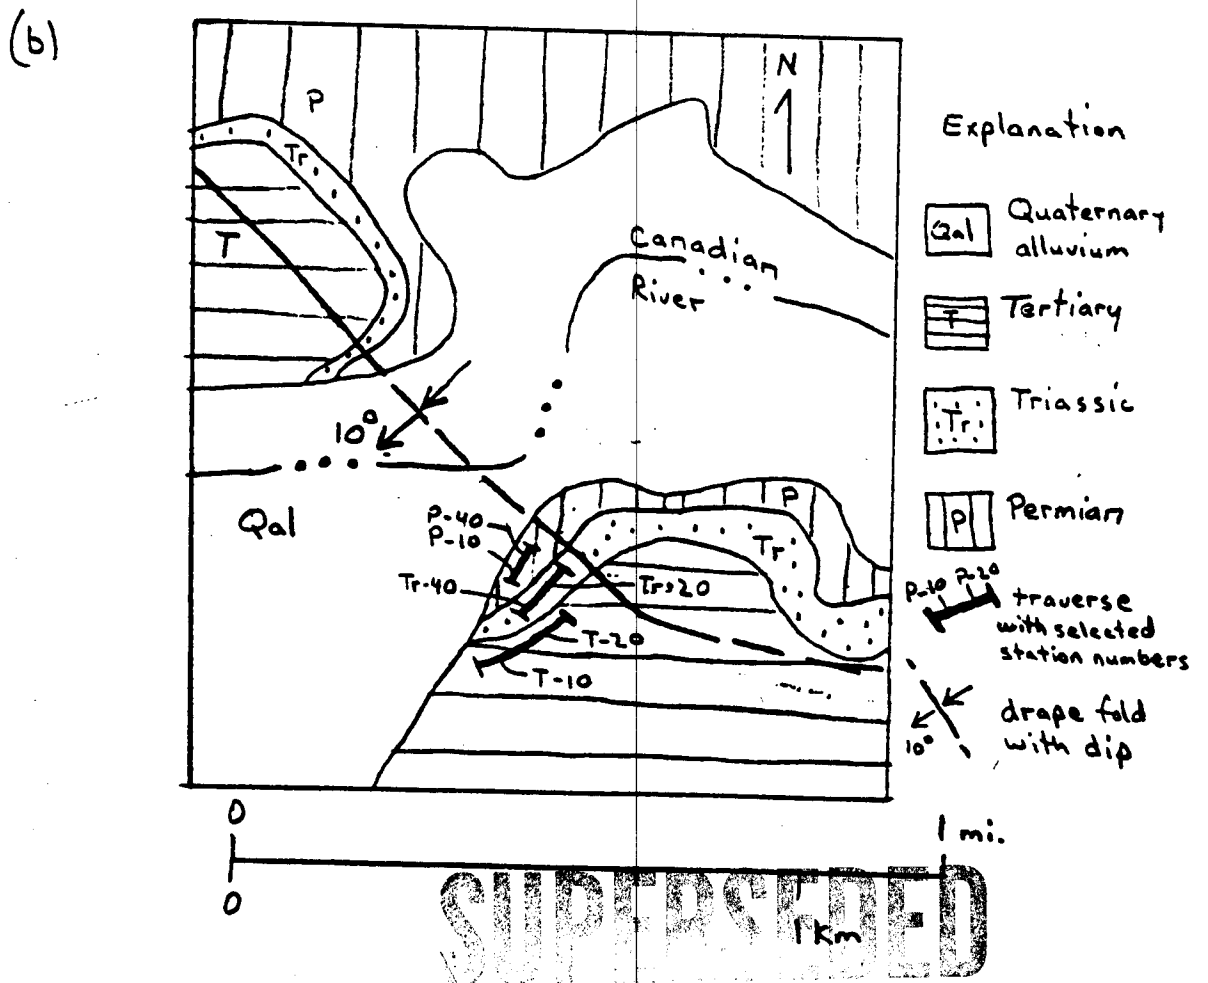 (b)
N
P
Tr
T
Canadian
River
10°
Qal
P-40
P-10
Tr-40
P
Tr
Tr-20
T-20
T-10
Explanation
Qal
Quaternary
alluvium
T
Tertiary
Tr
Triassic
P
Permian
P-10 P-20
traverse
with selected
station numbers
10°
drape fold
with dip
0
1 mi.
0
1 Km
SUPERSEDED